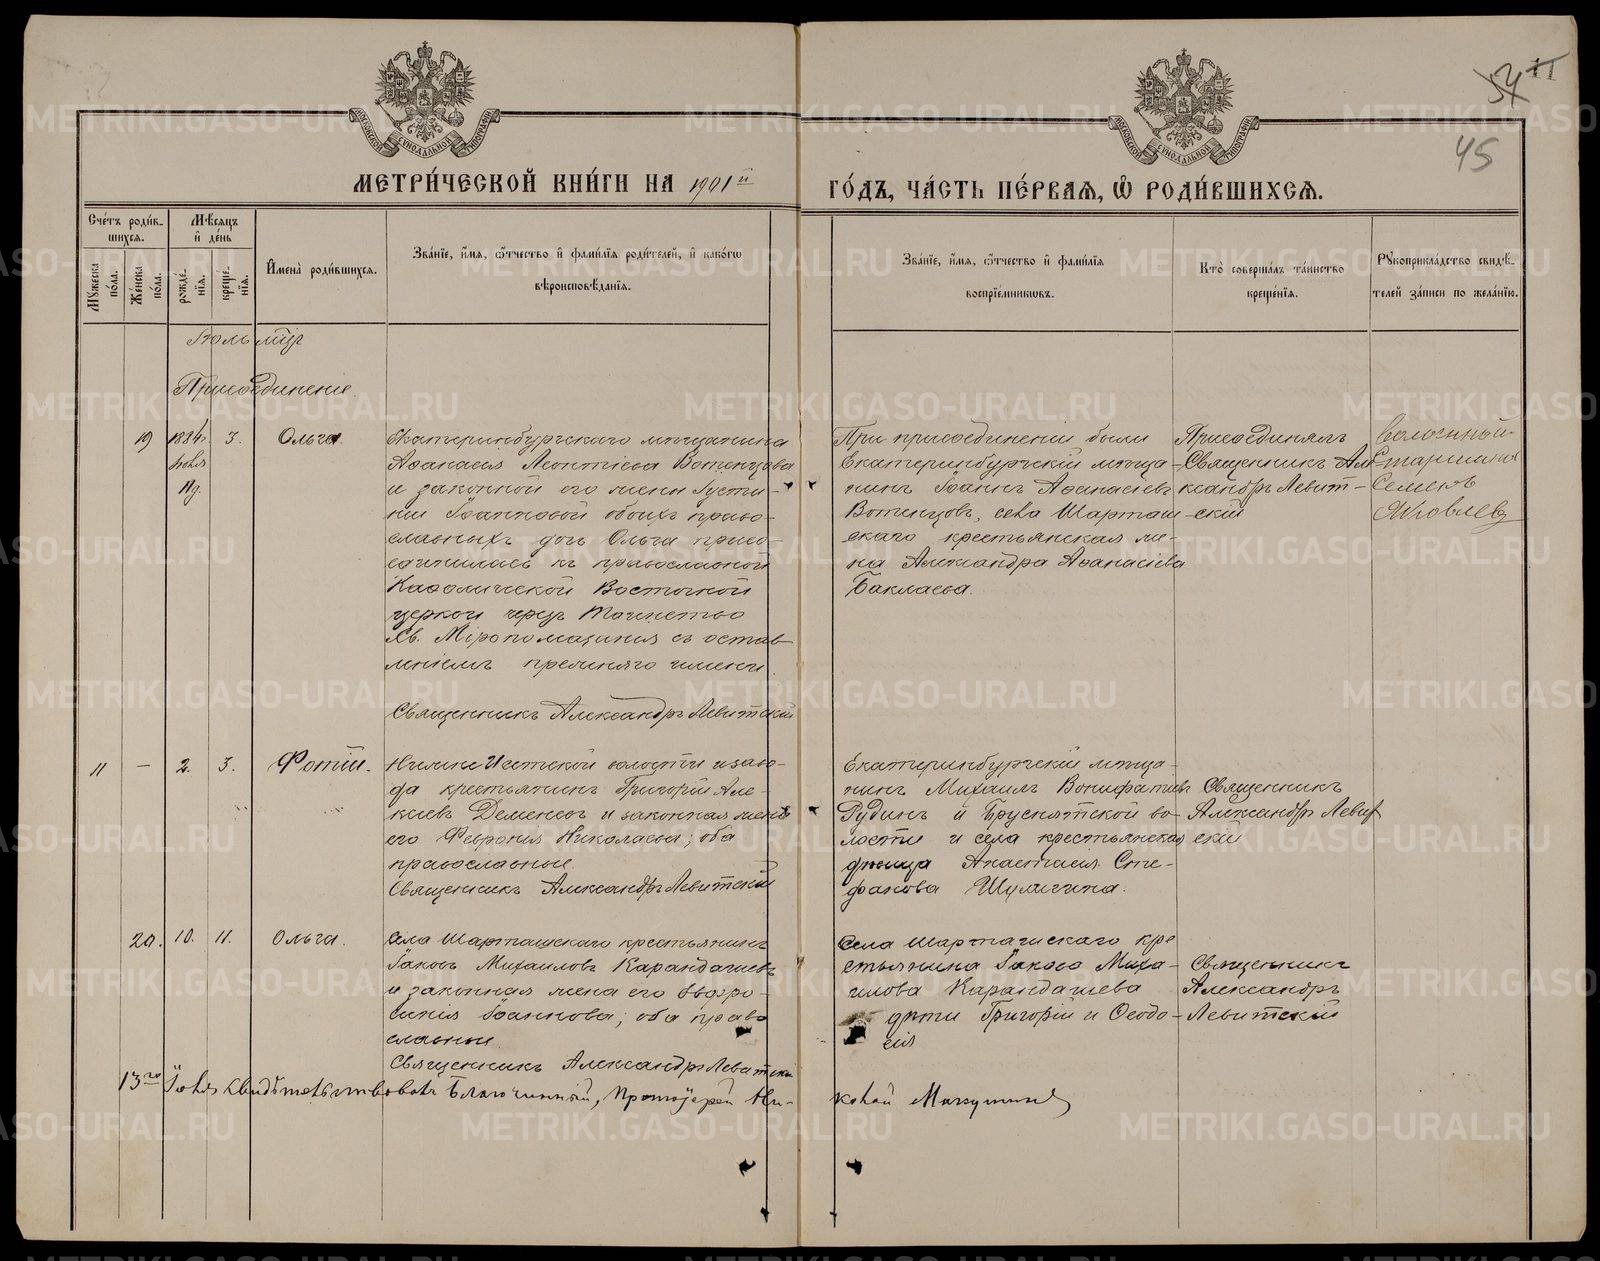 МОСКОВСКОЙ СѴНОДАЛЬНОЙ ТИПОГРАФІИ
МОСКОВСКОЙ СѴНОДАЛЬНОЙ ТИПОГРАФІИ
45
МЕТРИ́ЧЕСКОЙ КНИ́ГИ НА 1901й
ГО́ДЪ, ЧА́СТЬ ПЕ́РВАЯ, Ѽ РОДИ́ВШИХСЯ.
Сче́тъ роди́в-
шихся.
Мꙋ́жеска по́ла.
Же́нска по́ла.
Мѣ́сяцъ
и де́нь
рожде́-
нїя.
креще́-
нїя.
И҆мена̀ роди́вшихся.
Зва́нїе, и҆́мя, ѻ҆́тчество и҆ фами́лїя роди́телей, и҆ како́гѡ
вѣроисповѣ́данїя.
Зва́нїе, и҆́мя, ѻ҆́тчество и҆ фами́лїя
воспрїе́мникѡвъ.
Кто̀ соверша́лъ та́инство
креще́нїя.
Рꙋкоприкла́дство свидѣ́-
телей за́писи по жела́нїю.
Іюль мцъ
Присоединеніе.
19
1884г.
Іюля
11д.
3.
Ольга
Екатеринбургскаго мѣщанина
Аѳанасія Леонтіева Вотинцова
и законной его жены Густи-
ніи Іоанновой обоихъ право-
славныхъ дочь Ольга присо-
единилась къ православной
Каѳолической Восточной
церкви чрезъ Таинство
Св. Мѵропомазанія съ остав-
леніемъ прежняго имени
Священникъ Александръ Левитскій
При присоединеніи были
Екатеринбургскій мѣща-
нинъ Іоаннъ Аѳанасіевъ
Вотинцовъ, села Шарташ-
скаго крестьянская же-
на Александра Аѳанасіева
Баклаева.
Присоединялъ
Священникъ Але-
ксандръ Левит-
скій
Волостный
Старшина
Семенъ
Яковлевъ
11
—
2.
3.
Фотій.
Нижне Исетской волости и заво-
да крестьянинъ Григорій Але-
ксіевъ Деменевъ и законная жена
его Феvронія Николаева; оба
православные
Священникъ Александръ Левитскій
Екатеринбургскій мѣща-
нинъ Михаилъ Вонифатіевъ
Рудинъ и Бруснятской во-
лости и села крестьянская
дѣвица Анастасія Сте-
фанова Шулигина.
Священникъ
Александръ Левит-
скій
20.
10.
11.
Ольга.
Села Шарташскаго крестьянинъ
Іаковъ Михаиловъ Карандашевъ
и законная жена его Евфро-
синія Іоаннова; оба право
славные.
Священникъ Александръ Левитскій
Села Шарташскаго кре
стьянина Іакова Миха-
илова Карандашева
дѣти Григорій и Ѳеодо-
сія
Священникъ
Александръ
Левитскій
13го Іюля свидѣтельствовалъ Благочинный, Протоіерей Ни-
колай
METRIKI.GASO-URAL.RU